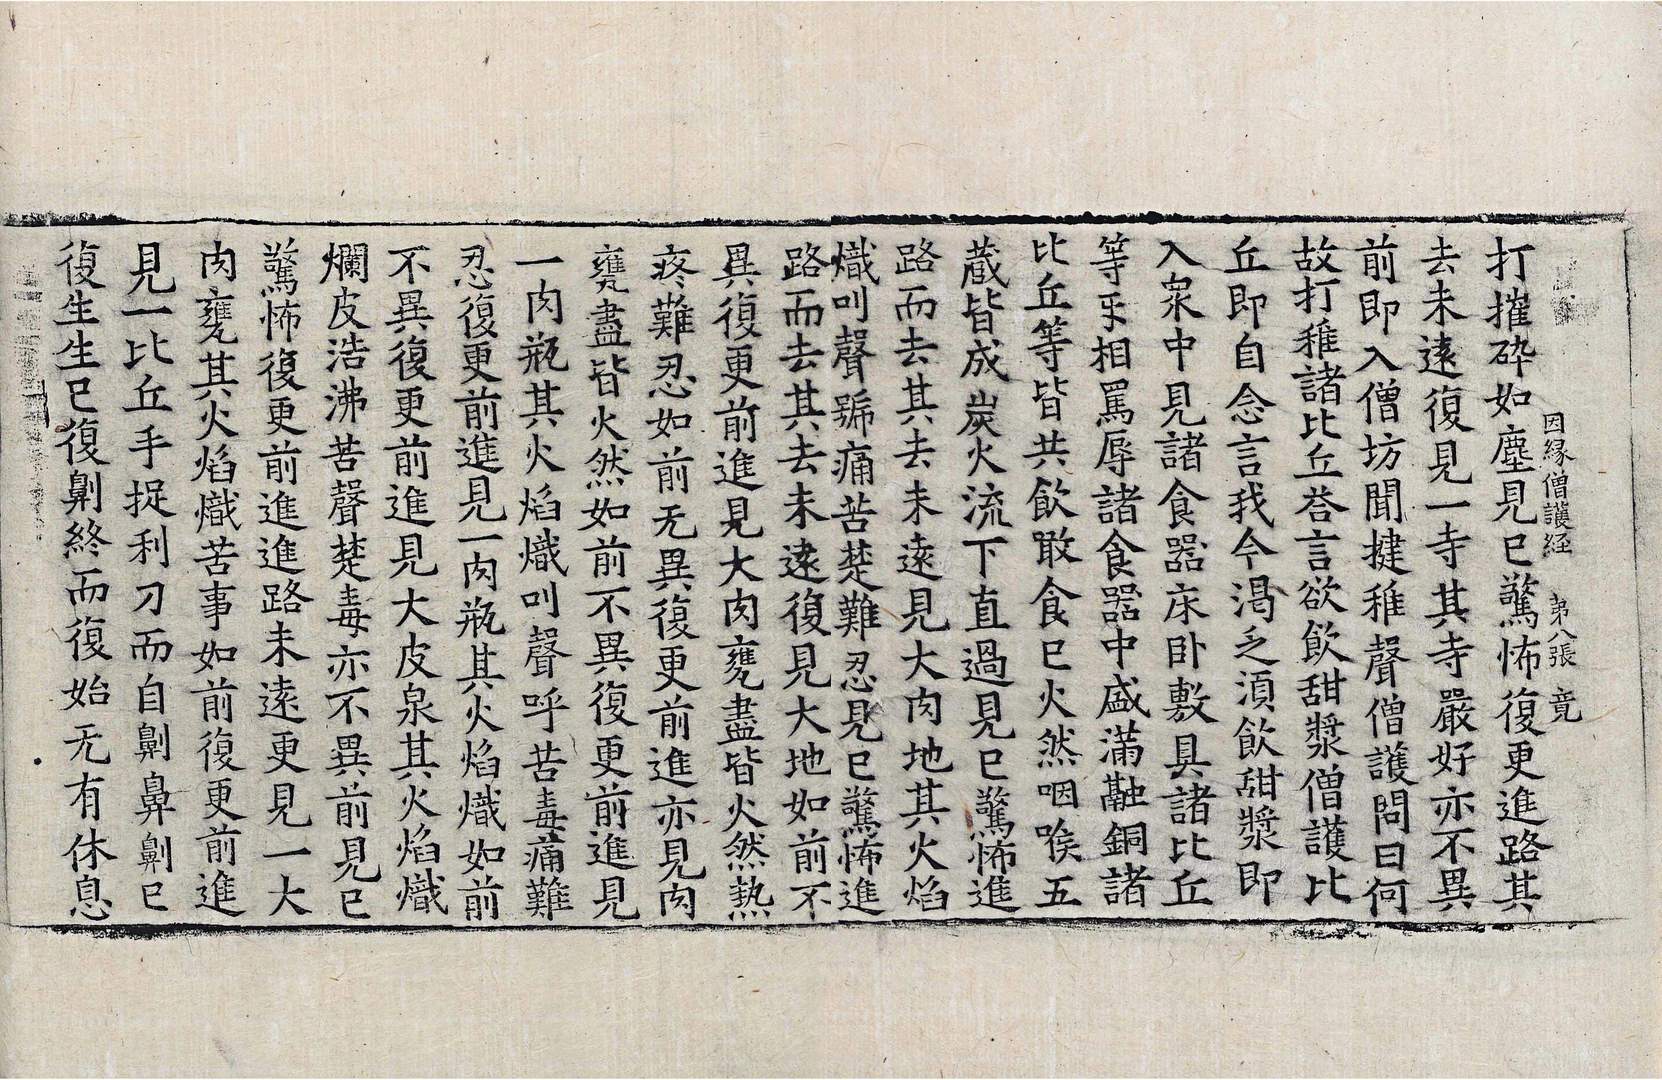 因緣僧護経　第八張　竟
打摧碎如塵見已驚怖復更進路其
去未遠復見一寺其寺嚴好亦不異
前即入僧坊聞揵稚聲僧護問曰何
故打稚諸比丘荅言欲飲甜漿僧護比
丘即自念言我今渴乏湏飲甜漿即
入衆中見諸食器床卧敷具諸比丘
等𠄔相罵辱諸食器中盛滿融銅諸
比丘等皆共飲噉食已火然咽喉五
藏皆成炭火流下直過見已驚怖進
路而去其去未遠見大肉地其火焰
熾叫聲號痛苦楚難忍見已驚怖進
路而去其去未遠復見大地如前不
異復更前進見大肉甕盡皆火然熱
疼難忍如前无異復更前進亦見肉
甕盡皆火然如前不異復更前進見
一肉瓶其火焰熾叫聲呼苦毒痛難
忍復更前進見一肉瓶其火焰熾如前
不異復更前進見大皮泉其火焰熾
爛皮浩沸苦聲楚毒亦不異前見已
驚怖復更前進進路未遠更見一大
肉甕其火焰熾苦事如前復更前進
見一比丘手捉利刀而自劓鼻劓已
復生生已復劓終而復始无有休息